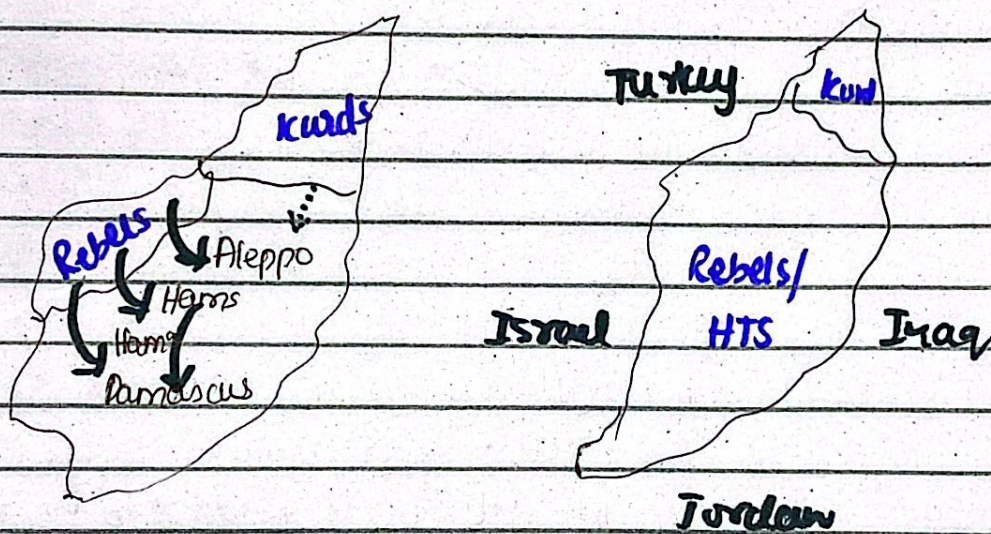 Kurds
Rebels
Aleppo
Homs
Hama
Damascus
Turkey
Kurd
Rebels/
HTS
Israel
Iraq
Jordan